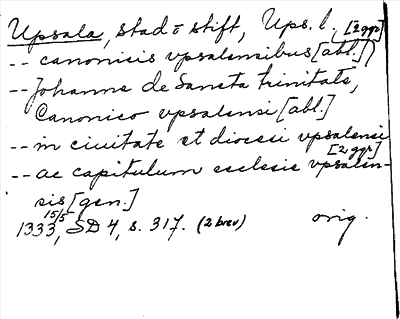 Upsala, stad o stift, Ups. l. [2 ggr]
-- canonicis vpsalensibus [abl.])
-- Johanne de Sancta trinitate,
Canonico vpsalensi [abl.]
-- in ciuitate et diocesi vpsalensi
[2 ggr]
-- ac capitulum ecclesie vpsalen-
sis [gen.]
1333 15/5, SD 4, s. 317. (2 brev) orig.